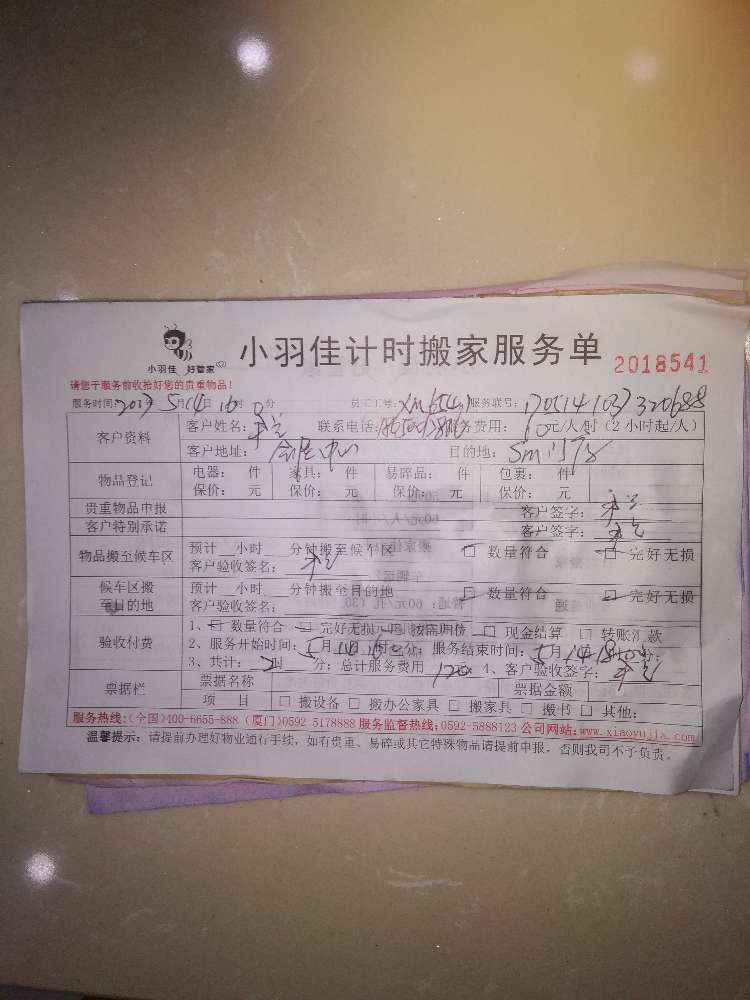 小羽佳 好管家
小羽佳计时搬家服务单 2018541
请您于服务前收拾好您的贵重物品！
服务时间: 5月14日16时0分 员工工号: 服务联号:
客户资料
客户姓名: 联系电话: 服务费用: 元/人/时（2小时起/人）
客户地址: 中心 目的地: SM
物品登记
电器: 件 家具: 件 易碎品: 件 包裹: 件
保价: 元 保价: 元 保价: 元 保价: 元
贵重物品申报 客户签字:
客户特别承诺 客户签字:
物品搬至候车区
预计 小时 分钟搬至候车区 □ 数量符合 □ 完好无损
客户验收签名:
候车区搬
至目的地
预计 小时 分钟搬至目的地 □ 数量符合 □ 完好无损
客户验收签名:
验收付费
1、□ 数量符合 □ 完好无损 □ 按需归位 □ 现金结算 □ 转账汇款
2、服务开始时间: 5月14日 分; 服务结束时间: 5月14日18时 分;
3、共计: 2时 分; 总计服务费用 120 4、客户验收签字:
票据栏
票据名称 票据金额
项 目 □ 搬设备 □ 搬办公家具 □ 搬家具 □ 搬书 □ 其他:
服务热线:(全国)400-6655-888 (厦门)0592 5178888 服务监督热线: 0592-5888123 公司网站: www.xiaoyujia.com
温馨提示: 请提前办理好物业通行手续，如有贵重、易碎或其它特殊物品请提前申报，否则我司不予负责。